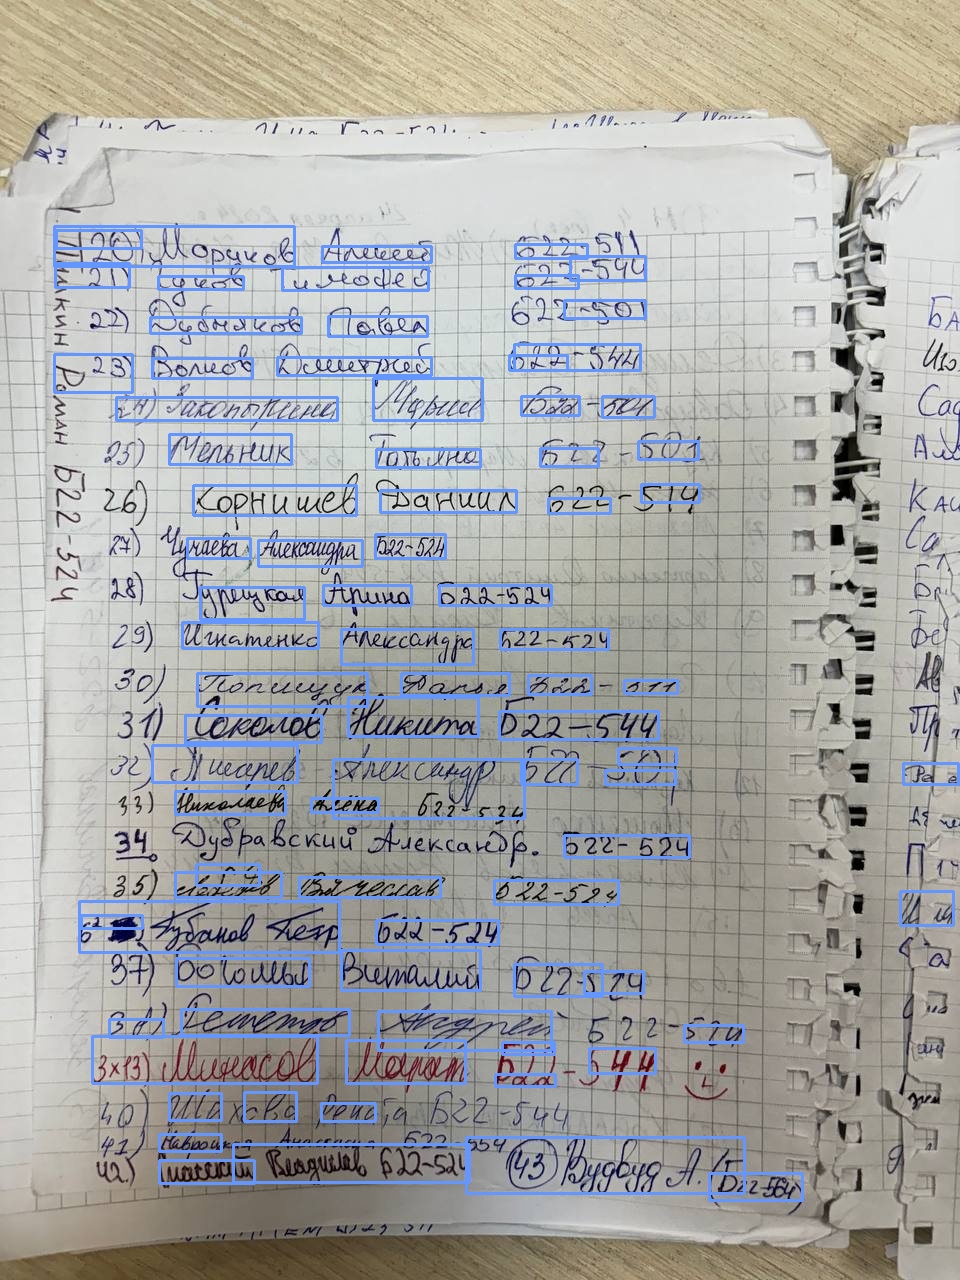 20) Моруков Алексей Б22-511
21) Гуков Тимофей Б22-544
22) Дубняков Павел Б22-501
23) Волков Дмитрий Б22-544
24) Закопырина Мария Б22-504
25) Мельник Татьяна Б22-501
26) Корнишев Даниил Б22-514
27) Чучаева Александра Б22-524
28) Турецкая Арина Б22-524
29) Игнатенко Александра Б22-524
30) Полищук Дарья Б22-511
31) Соколов Никита Б22-544
32) Писарев Александр Б22-501
33) Николаева Алёна Б22-524
34. Дубравский Александр. Б22-524
35) Вячеслав Б22-524
Кубанов Петр Б22-524
37) Виталий Б22-524
Андрей Б22-524
3×13) Минасов Марат Б22-544
40) Шахова Рената Б22-544
41) Анастасия Б22-554
42.) Владислав Б22-524
43 Вудвуд А. (Б22-564)
Пишкин Роман Б22-524